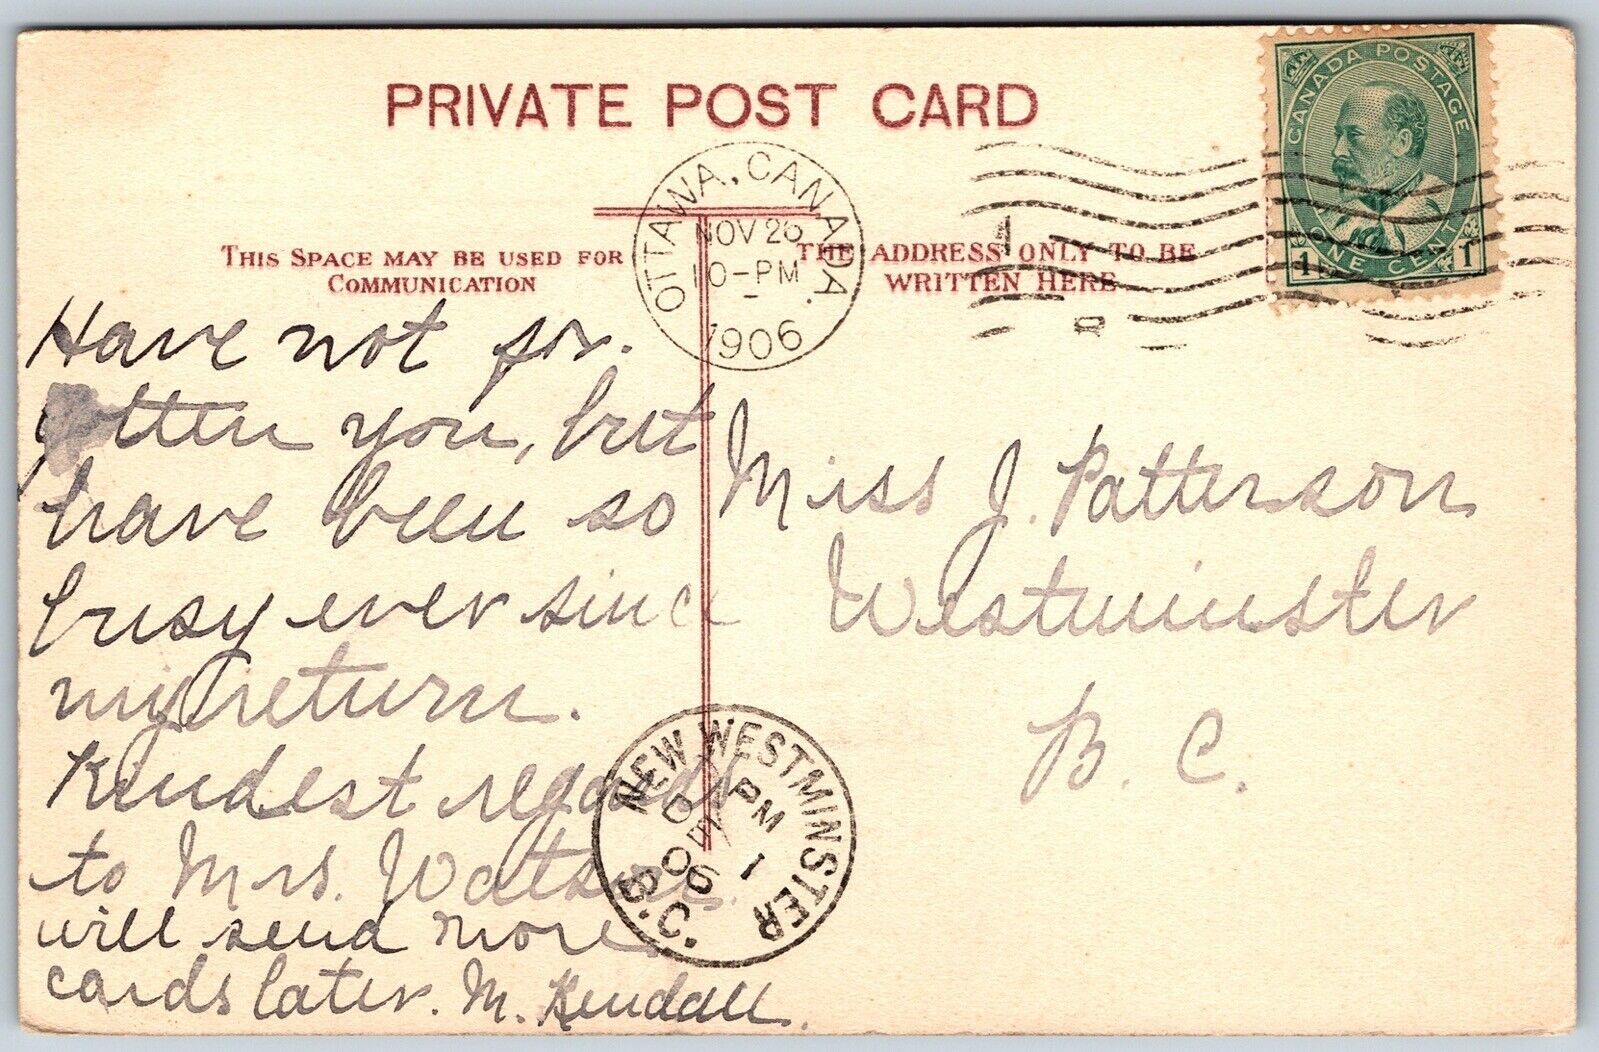 PRIVATE POST CARD
CANADA POSTAGE
1 ONE CENT 1
OTTAWA, CANADA.
NOV 26
10-PM
1906
THIS SPACE MAY BE USED FOR
COMMUNICATION
THE ADDRESS ONLY TO BE
WRITTEN HERE
Have not for.
gotten you, but
have been so
busy ever since
my return.
Kindest regards
to Mrs. Watson.
will send more
cards later. M. Kendall.
Miss J. Patterson
Westminster
B. C.
NEW WESTMINSTER
B.C.
PM
DE 1
06